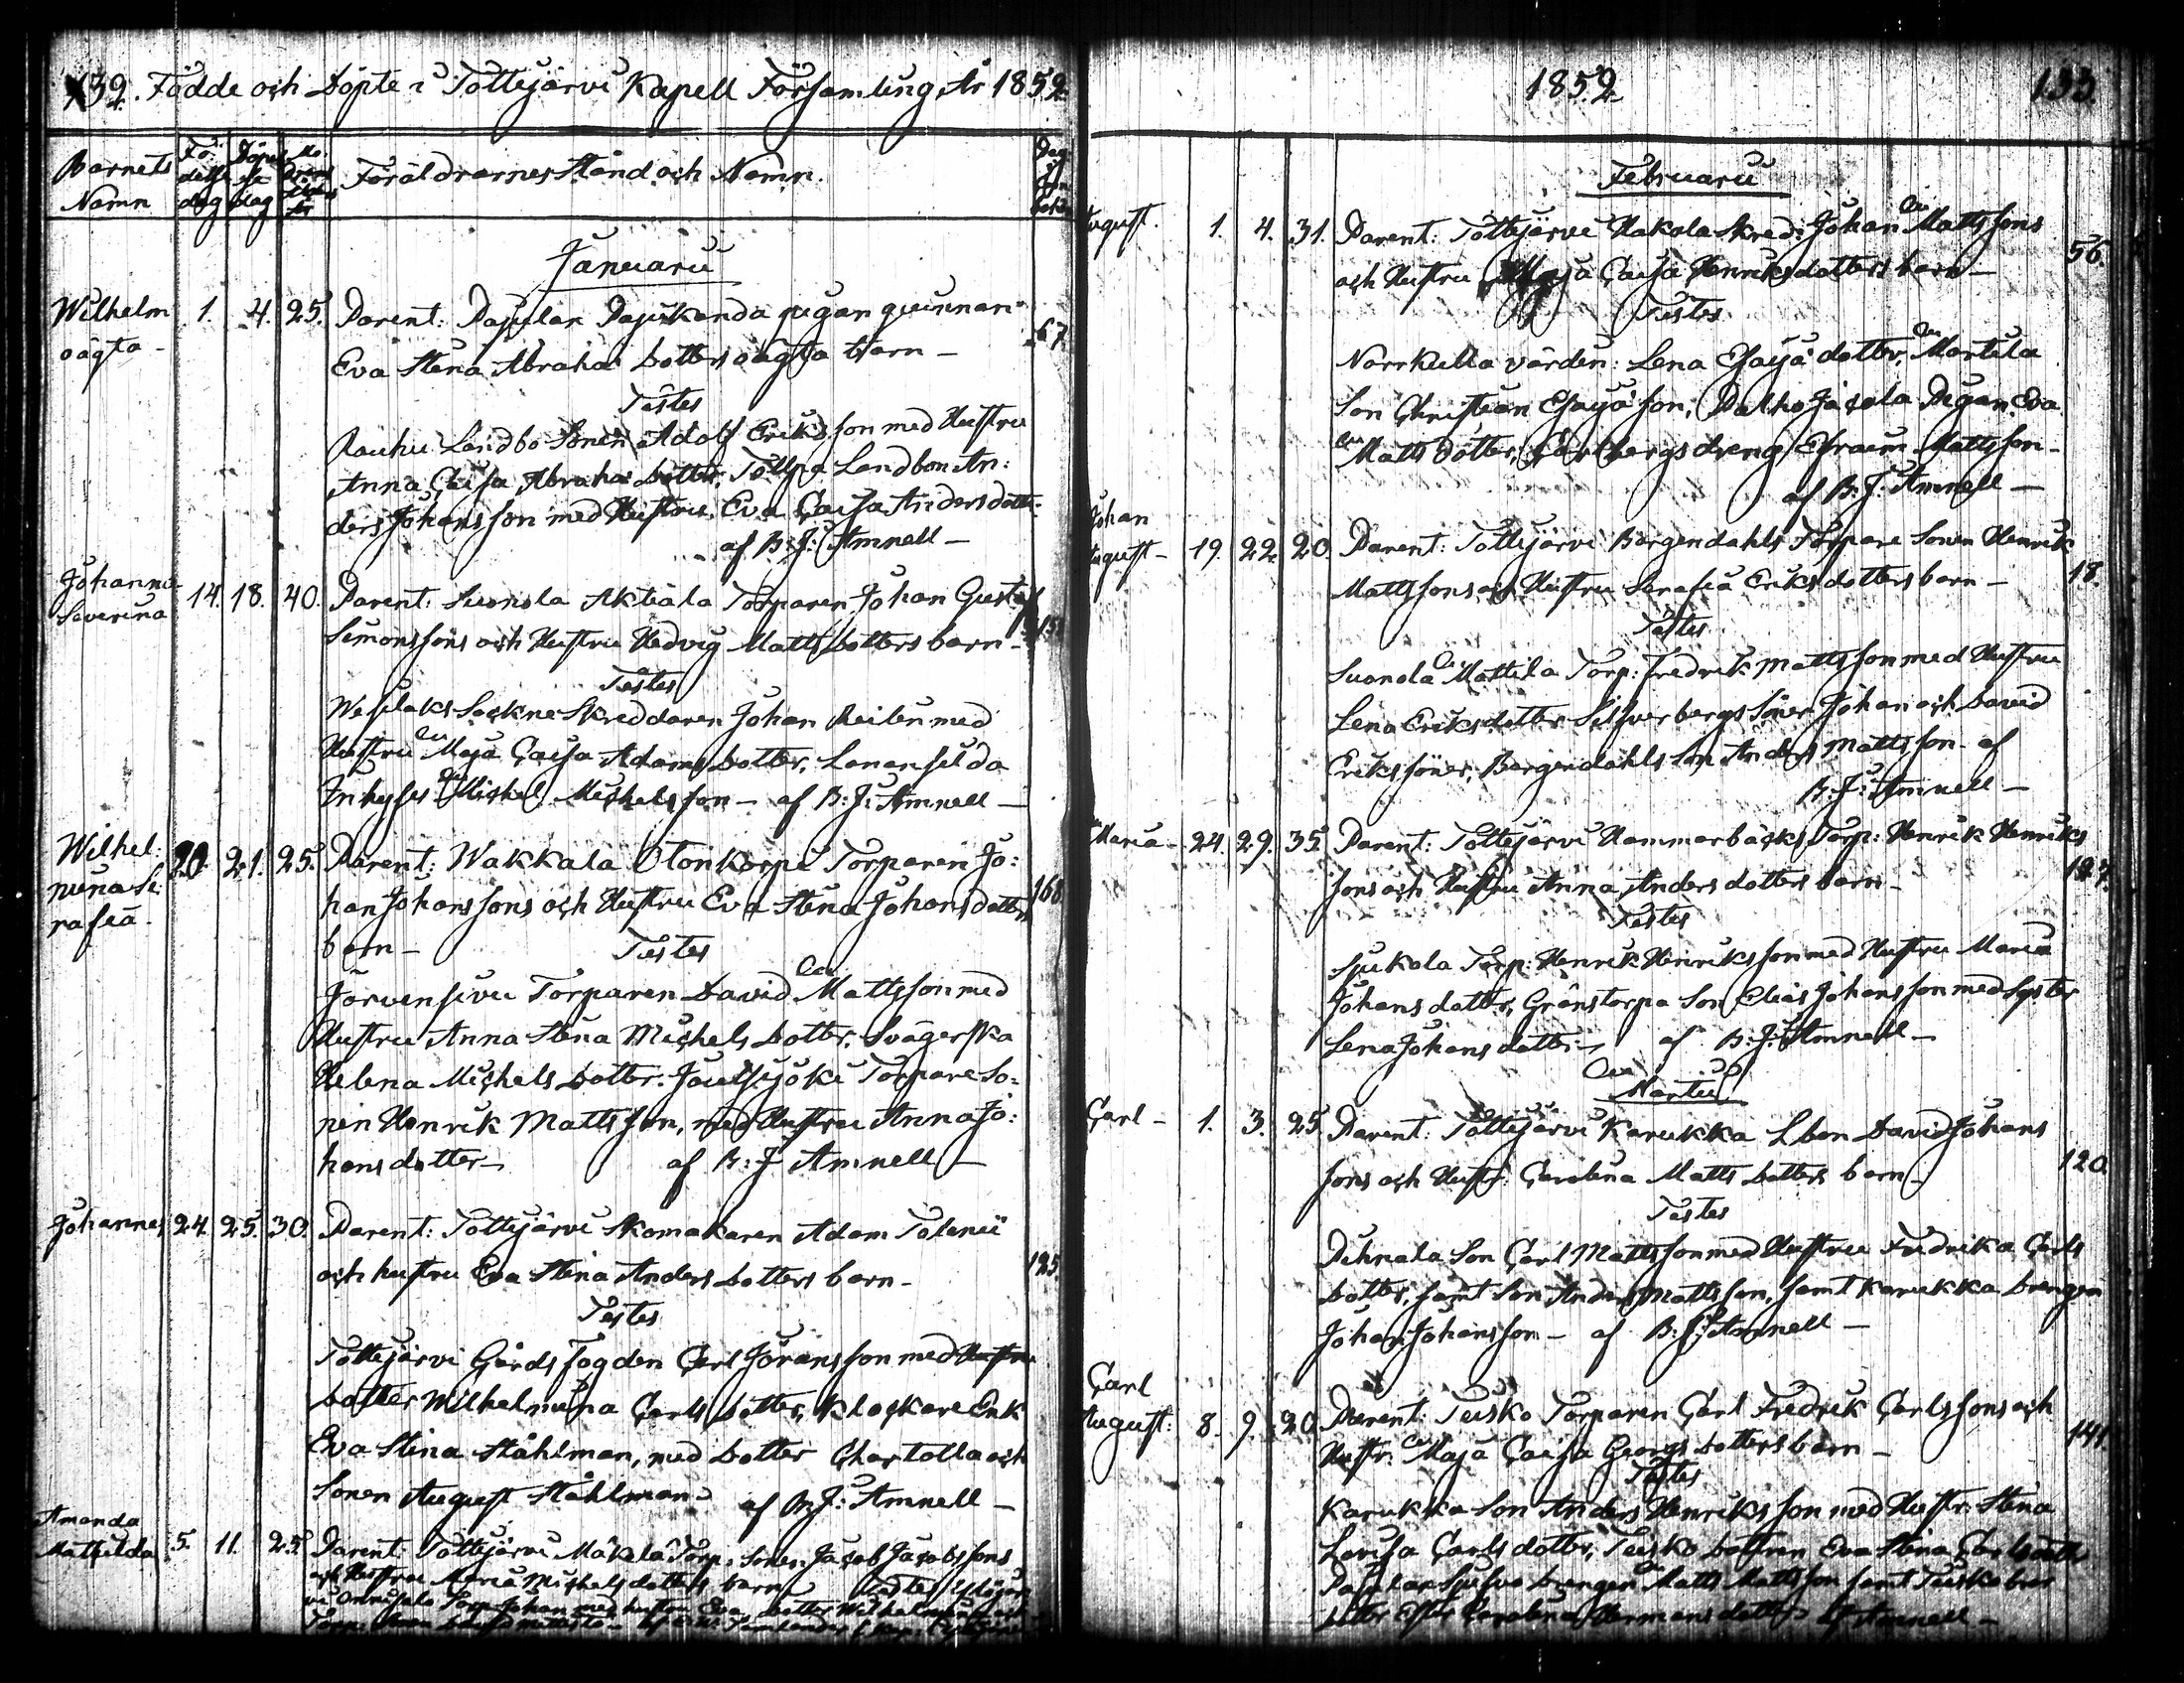 132. Födde och Döpte i Tottijärvi Kapell Församling, År 1852.
Barnets Namn
Födelse dag
Döpelse dag
Modrens ålder År
Föräldrarnes Stånd och Namn.
Januarii
Wilhelm oägta - 1. 4. 25. Parent: Pajulan Pajukanda pigan qvinnan
Eva Stina Abrahams Dotters oägta barn - 67.
Testes
Rauhu Landbo Sonen Adolf Eriksson med Hustru
Anna Caisa Abrahams Dotter, Landbon An:
ders Johansson med Hustru Eva Caisa Andersdotter
af B: J: Amnell -
Johanna Severina 14. 18. 40. Parent: Suonola Aktiala Torparen Johan Gustaf
Simonssons och Hustru Hedvig Matts Dotters barn -
Testes
Wesilaks Sockne Skreddaren Johan med
Hustru Maja Caisa Adams Dotter, Lanensilda
Inhyses Michel Michelsson - af B: J: Amnell -
Wilhelmina Serafia - 20. 21. 25. Parent: Wakkala Otonkorpi Torparen Jo:
han Johanssons och Hustru Eva Stina Johansdotters 168
barn - Testes
Jervensivu Torparen David Mattsson med
Hustru Anna Stina Michels Dotter, Svägerska
Helena Michels Dotter. Torpare So:
nen Henrik Mattsson, med Hustru Anna Jo:
hans dotter - af B: J Amnell -
Johannes 24. 25. 30. Parent: Tottijärvi Skomakaren Adam
och hustru Eva Stina Anders Dotters barn - 125.
Testes
Tottijärvi Gårds Fogden Carl Göransson med Hustru
dotter Wilhelmina Carls Dotter, Klockare Enk
Eva Stina Ståhlman, med Dotter Chartolla och
Sonen August Ståhlman - af B: J: Amnell -
Amanda Mathilda 5. 11. 25. Parent: Tottijärvi Mäkelä Torp: Sonen Jacob Jacobssons
och Hustru Maria Michels dotters barn Testes
1852. 133.
Februarii
August. 1. 4. 31. Parent: Tottijärvi Hakala Skred: Johan Mattssons
och Hustru Maja Caisa Henriksdotters barn - 56.
Testes
Norrkulla värden: Lena Esaja dotter, Martila
Son Christian Esaja son, Pigan Eva
Matts dotter, Carlbergs dreng Efraim Mattsson -
af B: J: Amnell -
Johan August - 19. 22. 20. Parent: Tottijärvi Bergendahls Torpare Sonen Henrik
Mattssons och Hustru Serafia Eriks dotters barn - 18.
Testes
Suonola Mattila Torp: Fredrik Mattsson med Hustru
Lena Eriks dotter Silfverbergs Söner Johan och David
Eriks söner, Bergendahls Son Anders Mattsson - af
B: J: Amnell -
Maria - 24. 29. 35. Parent: Tottijärvi Hammarbacks Torp: Henrik Henriks
sons och Hustru Anna Anders dotters barn - 127.
Testes
Sjukola Torp: Henrik Henriksson med Hustru Maria
Johans dotter, Gränstorpa Son Elias Johansson med Syster
Lena Johans dotter - af B: J: Amnell -
Martii
Carl - 1. 3. 25. Parent: Tottijärvi Karukka Lbon David Johans
sons och Hustr: Carolina Matts Dotters barn - 120.
Testes
Pihnala Son Carl Mattsson med Hustru Fredrika Carls
Dotter, samt Son Anders Mattsson, samt Karukka Drengen
Johan Johansson - af B: J: Amnell -
Carl August: 8. 9. 20. Parent: Teisko Torparen Carl Fredrik Carlssons och
Hustr: Maja Caisa Georgs Dotters barn - 141.
Testes
Karukka Son Anders Henriksson med Hustr: Stina
Lovisa Carls dotter, Teisko Dottren Eva Stina Carlsdotter
Drengen Matts Mattsson samt Teisko
dotter Carolina Hermans dotter af Amnell -